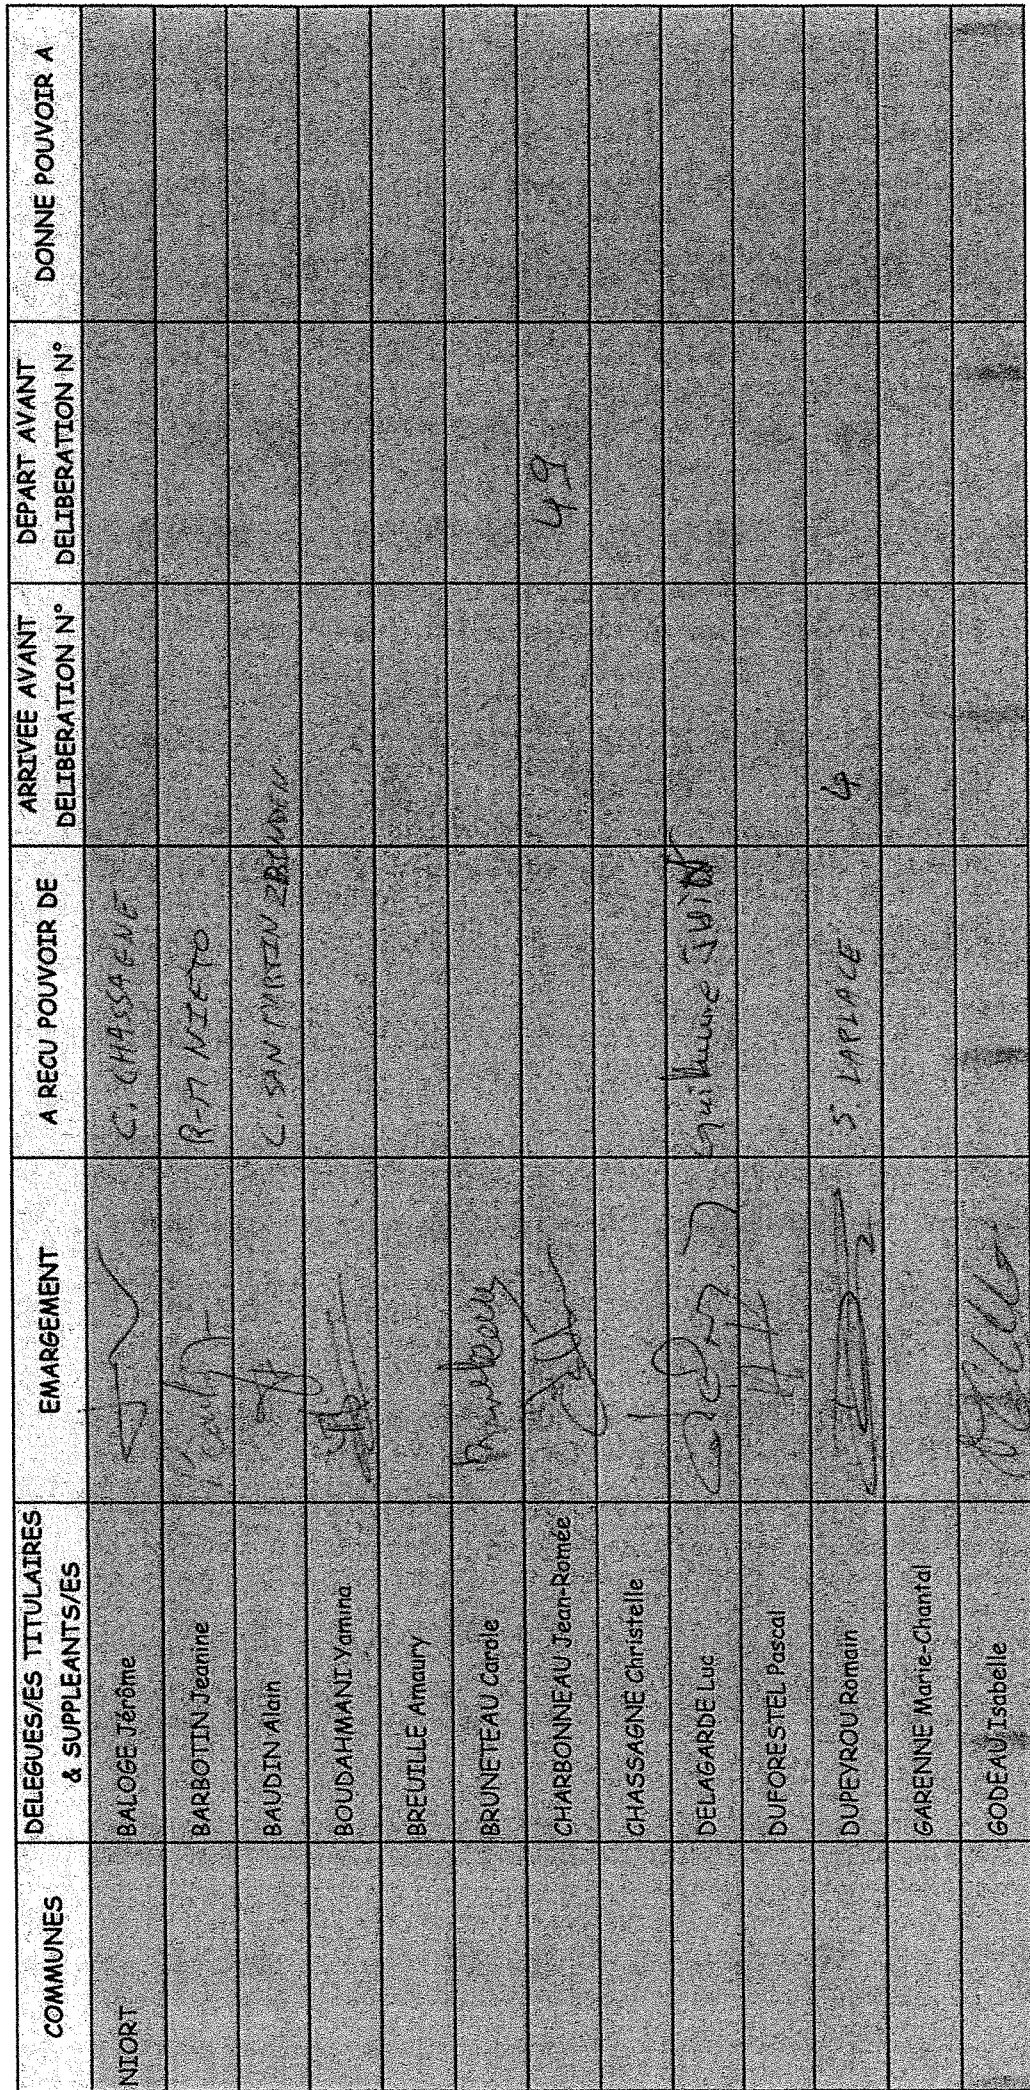 COMMUNES DELEGUES/ES TITULAIRES EMARGEMENT A RECU POUVOIR DE ARRIVEE AVANT DEPART AVANT DONNE POUVOIR A
& SUPPLEANTS/ES DELIBERATION N° DELIBERATION N°
NIORT BALOGE Jérôme C. CHASSAGNE
BARBOTIN Jeanine R-M NIETO
BAUDIN Alain C. SAN MARTIN ZBINDEN
BOUDAHMANI Yamina
BREUILLE Amaury
BRUNETEAU Carole
CHARBONNEAU Jean-Romée 49
CHASSAGNE Christelle
DELAGARDE Luc Guillaume JUIN
DUFORESTEL Pascal
DUPEYROU Romain S. LAPLACE 4
GARENNE Marie-Chantal
GODEAU Isabelle